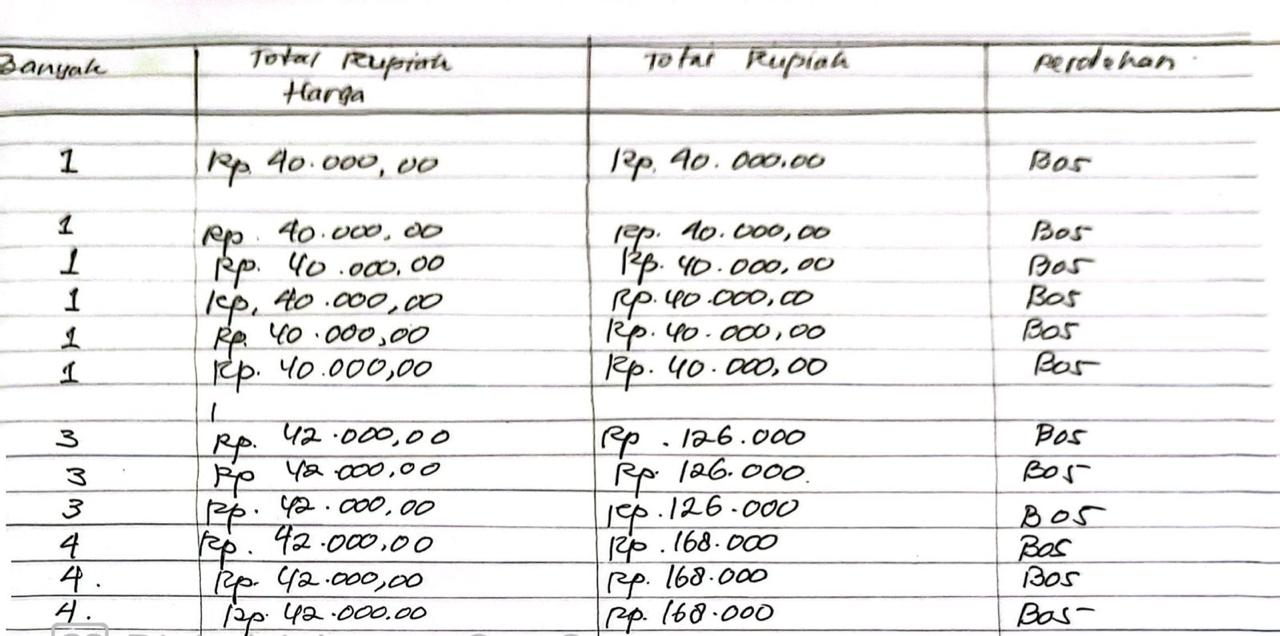 Banyak Total Rupiah Total Rupiah Perolehan
Harga
1 Rp. 40.000,00 Rp. 40.000.00 Bos
1 Rp. 40.000,00 Rp. 40.000,00 Bos
1 Rp. 40.000,00 Rp. 40.000,00 Bos
1 Rp. 40.000,00 Rp. 40.000,00 Bos
1 Rp. 40.000,00 Rp. 40.000,00 Bos
1 Rp. 40.000,00 Rp. 40.000,00 Bos
3 Rp. 42.000,00 Rp. 126.000 Bos
3 Rp 42.000,00 Rp. 126.000. Bos
3 Rp. 42.000,00 Rp. 126.000 Bos
4 Rp. 42.000,00 Rp. 168.000 Bos
4. Rp. 42.000,00 Rp. 168.000 Bos
4. Rp. 42.000.00 Rp. 168.000 Bos